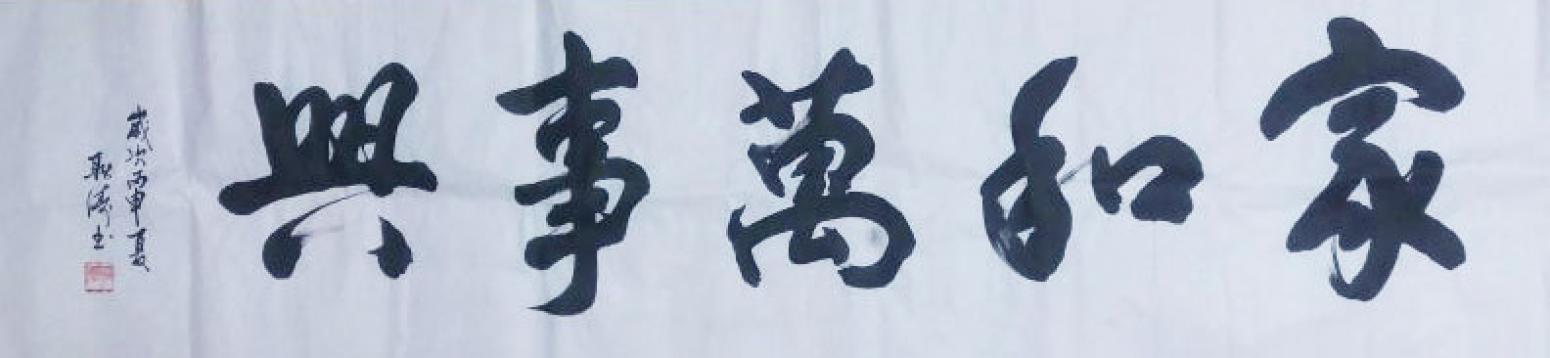 家和萬事興
歲次丙申夏
耿濤書